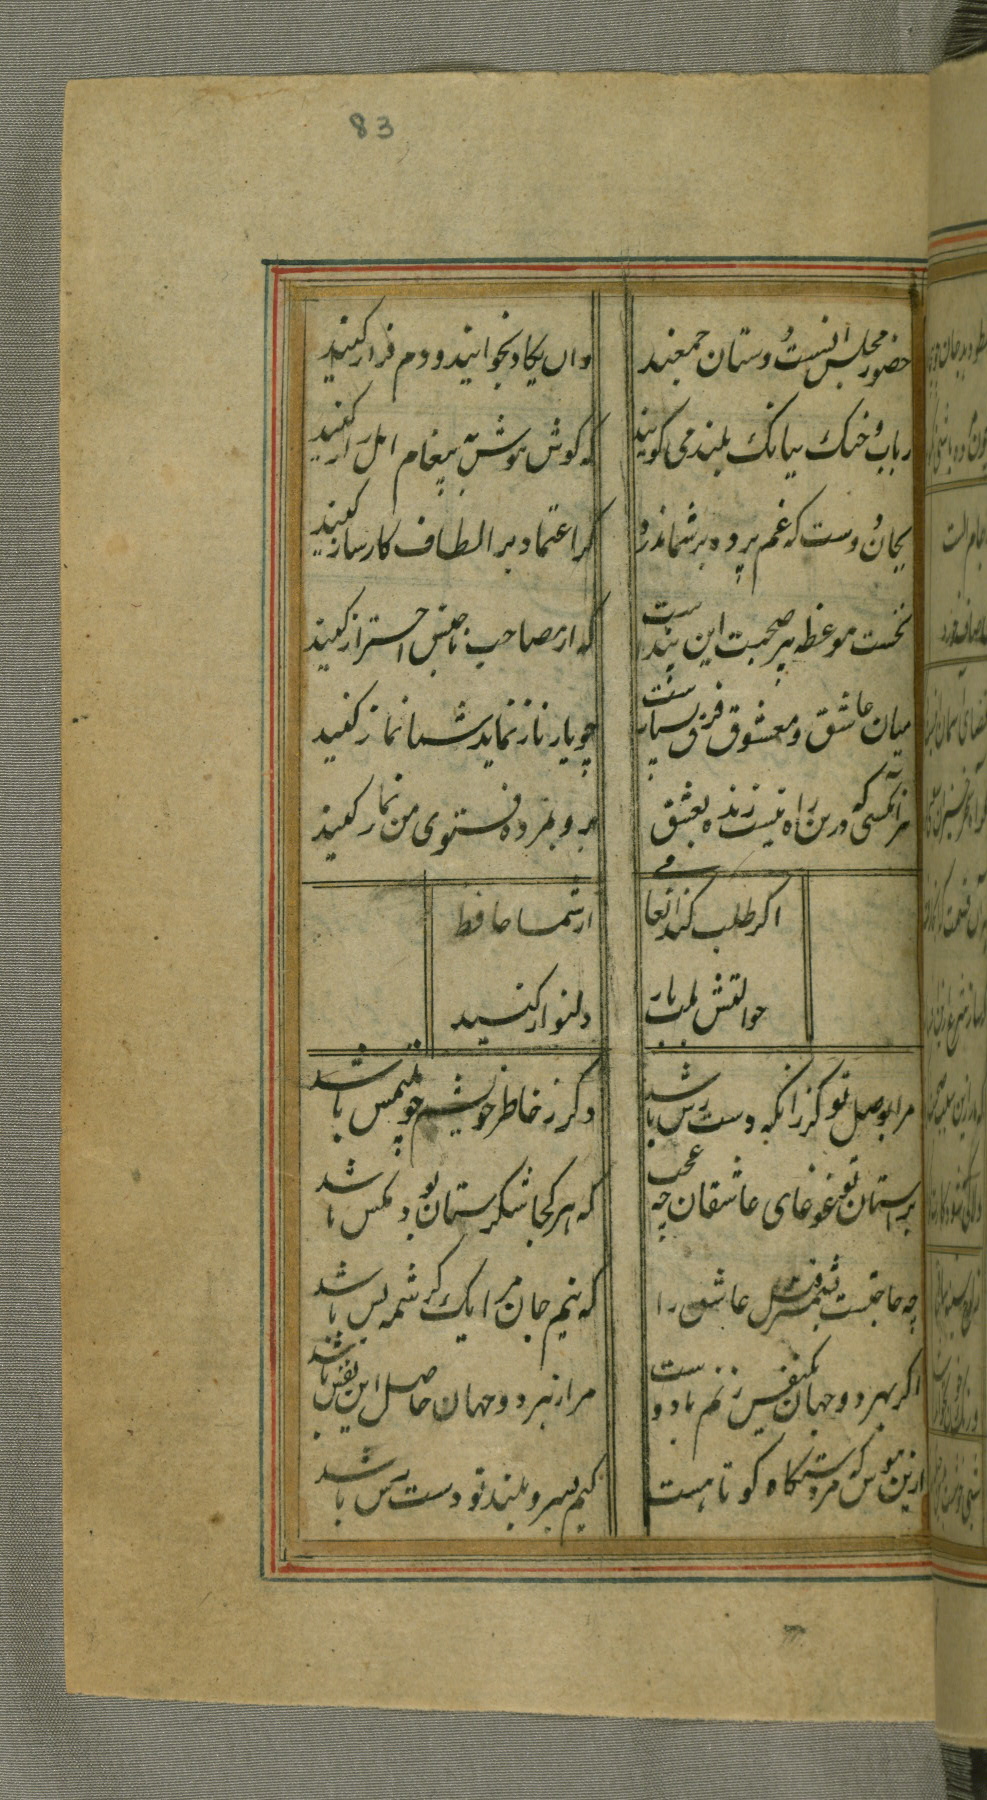 83
حضور مجلس انست و دوستان جمعند
وان یکاد بخوانید و دم فراز کنید
رباب و چنک ببانک بلند می کویند
که کوش هوش به پیغام اهل راز کنید
بجان دوست که غم پرده بر شما ندرد
کر اعتماد بر الطاف کارساز کنید
نخست موعظه پیر صحبت این پندست
که از مصاحب ناجنس احتراز کنید
میان عاشق و معشوق فرق بسیارست
چو یار ناز نماید شما نیاز کنید
هر آنکسی که درین راه نیست زنده بعشق
برو نمرده فتوی من نماز کنید
اکر طلب کند انعامی
از شما حافظ
حوالتش بلب یار
دلنواز کنید
مرا بوصل تو کر زانکه دست رس باشد
دکر ز خاطر خویشم چو باشد
بر استان تو غوغای عاشقان چه عجب
که هر کجا شکرستان بود مکس باشد
چه حاجتست بشمشیر قتل عاشق را
که نیم جان مرا یک کرشمه بس باشد
اکر بهر دو جهان یکنفس زنم با دوست
مرا ز هر دو جهان حاصل این نفس باشد
ازین هوس که مرا دستکاه کوتاهست
کیم بسرو بلند تو دست رس باشد